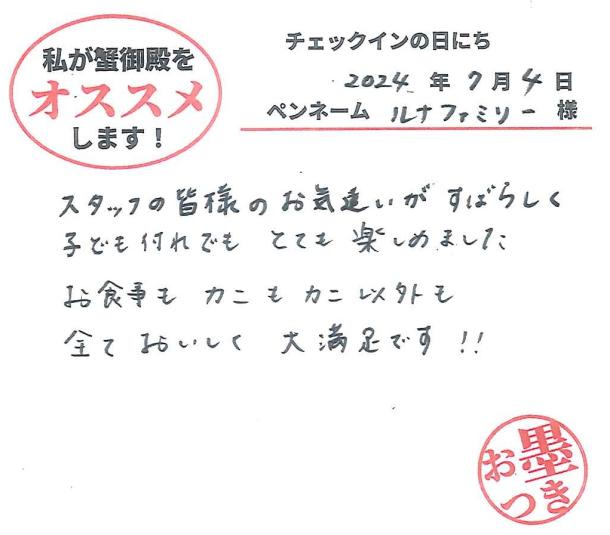 私が蟹御殿を
オススメ
します！
チェックインの日にち
2024 年 7 月 4 日
ペンネーム ルナファミリー 様
スタッフの皆様のお気遣いがすばらしく
子ども付れでも とても楽しめました
お食事も カニも カニ以外も
全て おいしく 大満足です !!
お墨
つき